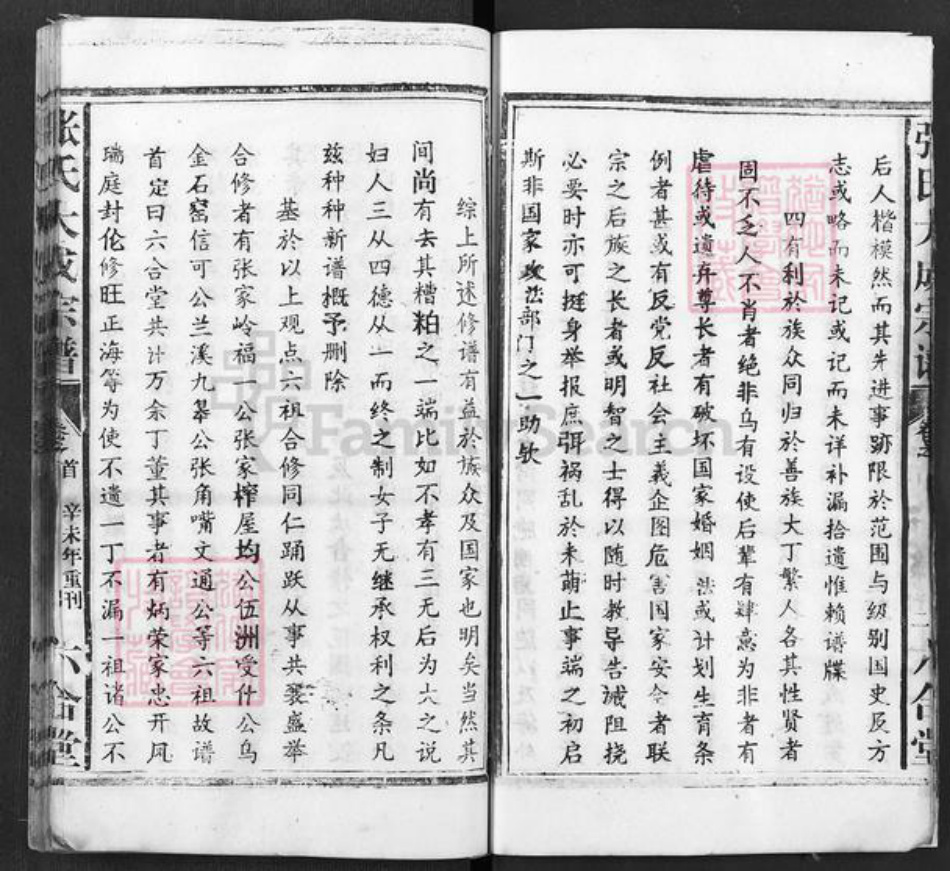 后人楷模然而其先进事跡限於范围与级别国史及方
志或略而未记或记而未详补漏拾遗惟赖谱牒
四有利於族众同归於善族大丁繁人各其性贤者
固不乏人不肖者绝非乌有设使后辈有肆意为非者有
虐待或遗弃尊长者有破坏国家婚姻法或计划生育条
例者甚或有反党反社会主義企图危害国家安全者联
宗之后族之长者或明智之士得以随时教导告诫阻挠
必要时亦可挺身举报庶弭祸乱於未萌止事端之初启
斯非国家政法部门之一助欤
综上所述修谱有益於族众及国家也明矣当然其
间尚有去其糟粕之一端比如不孝有三无后为大之说
妇人三从四德从一而终之制女子无继承权利之条凡
兹种种新谱概予删除
基於以上观点六祖合修同仁踊跃从事共襄盛举
合修者有张家岭福一公张家榨屋均公伍洲受什公乌
金石窑信可公兰溪九皋公张角嘴文通公等六祖故谱
首定曰六合堂共计万余丁董其事者有炳荣家忠开凤
瑞庭封伦修旺正海等为使不遗一丁不漏一祖诸公不
张氏大成宗谱
卷之
首
辛未年重刊
六合堂
FamilySearch